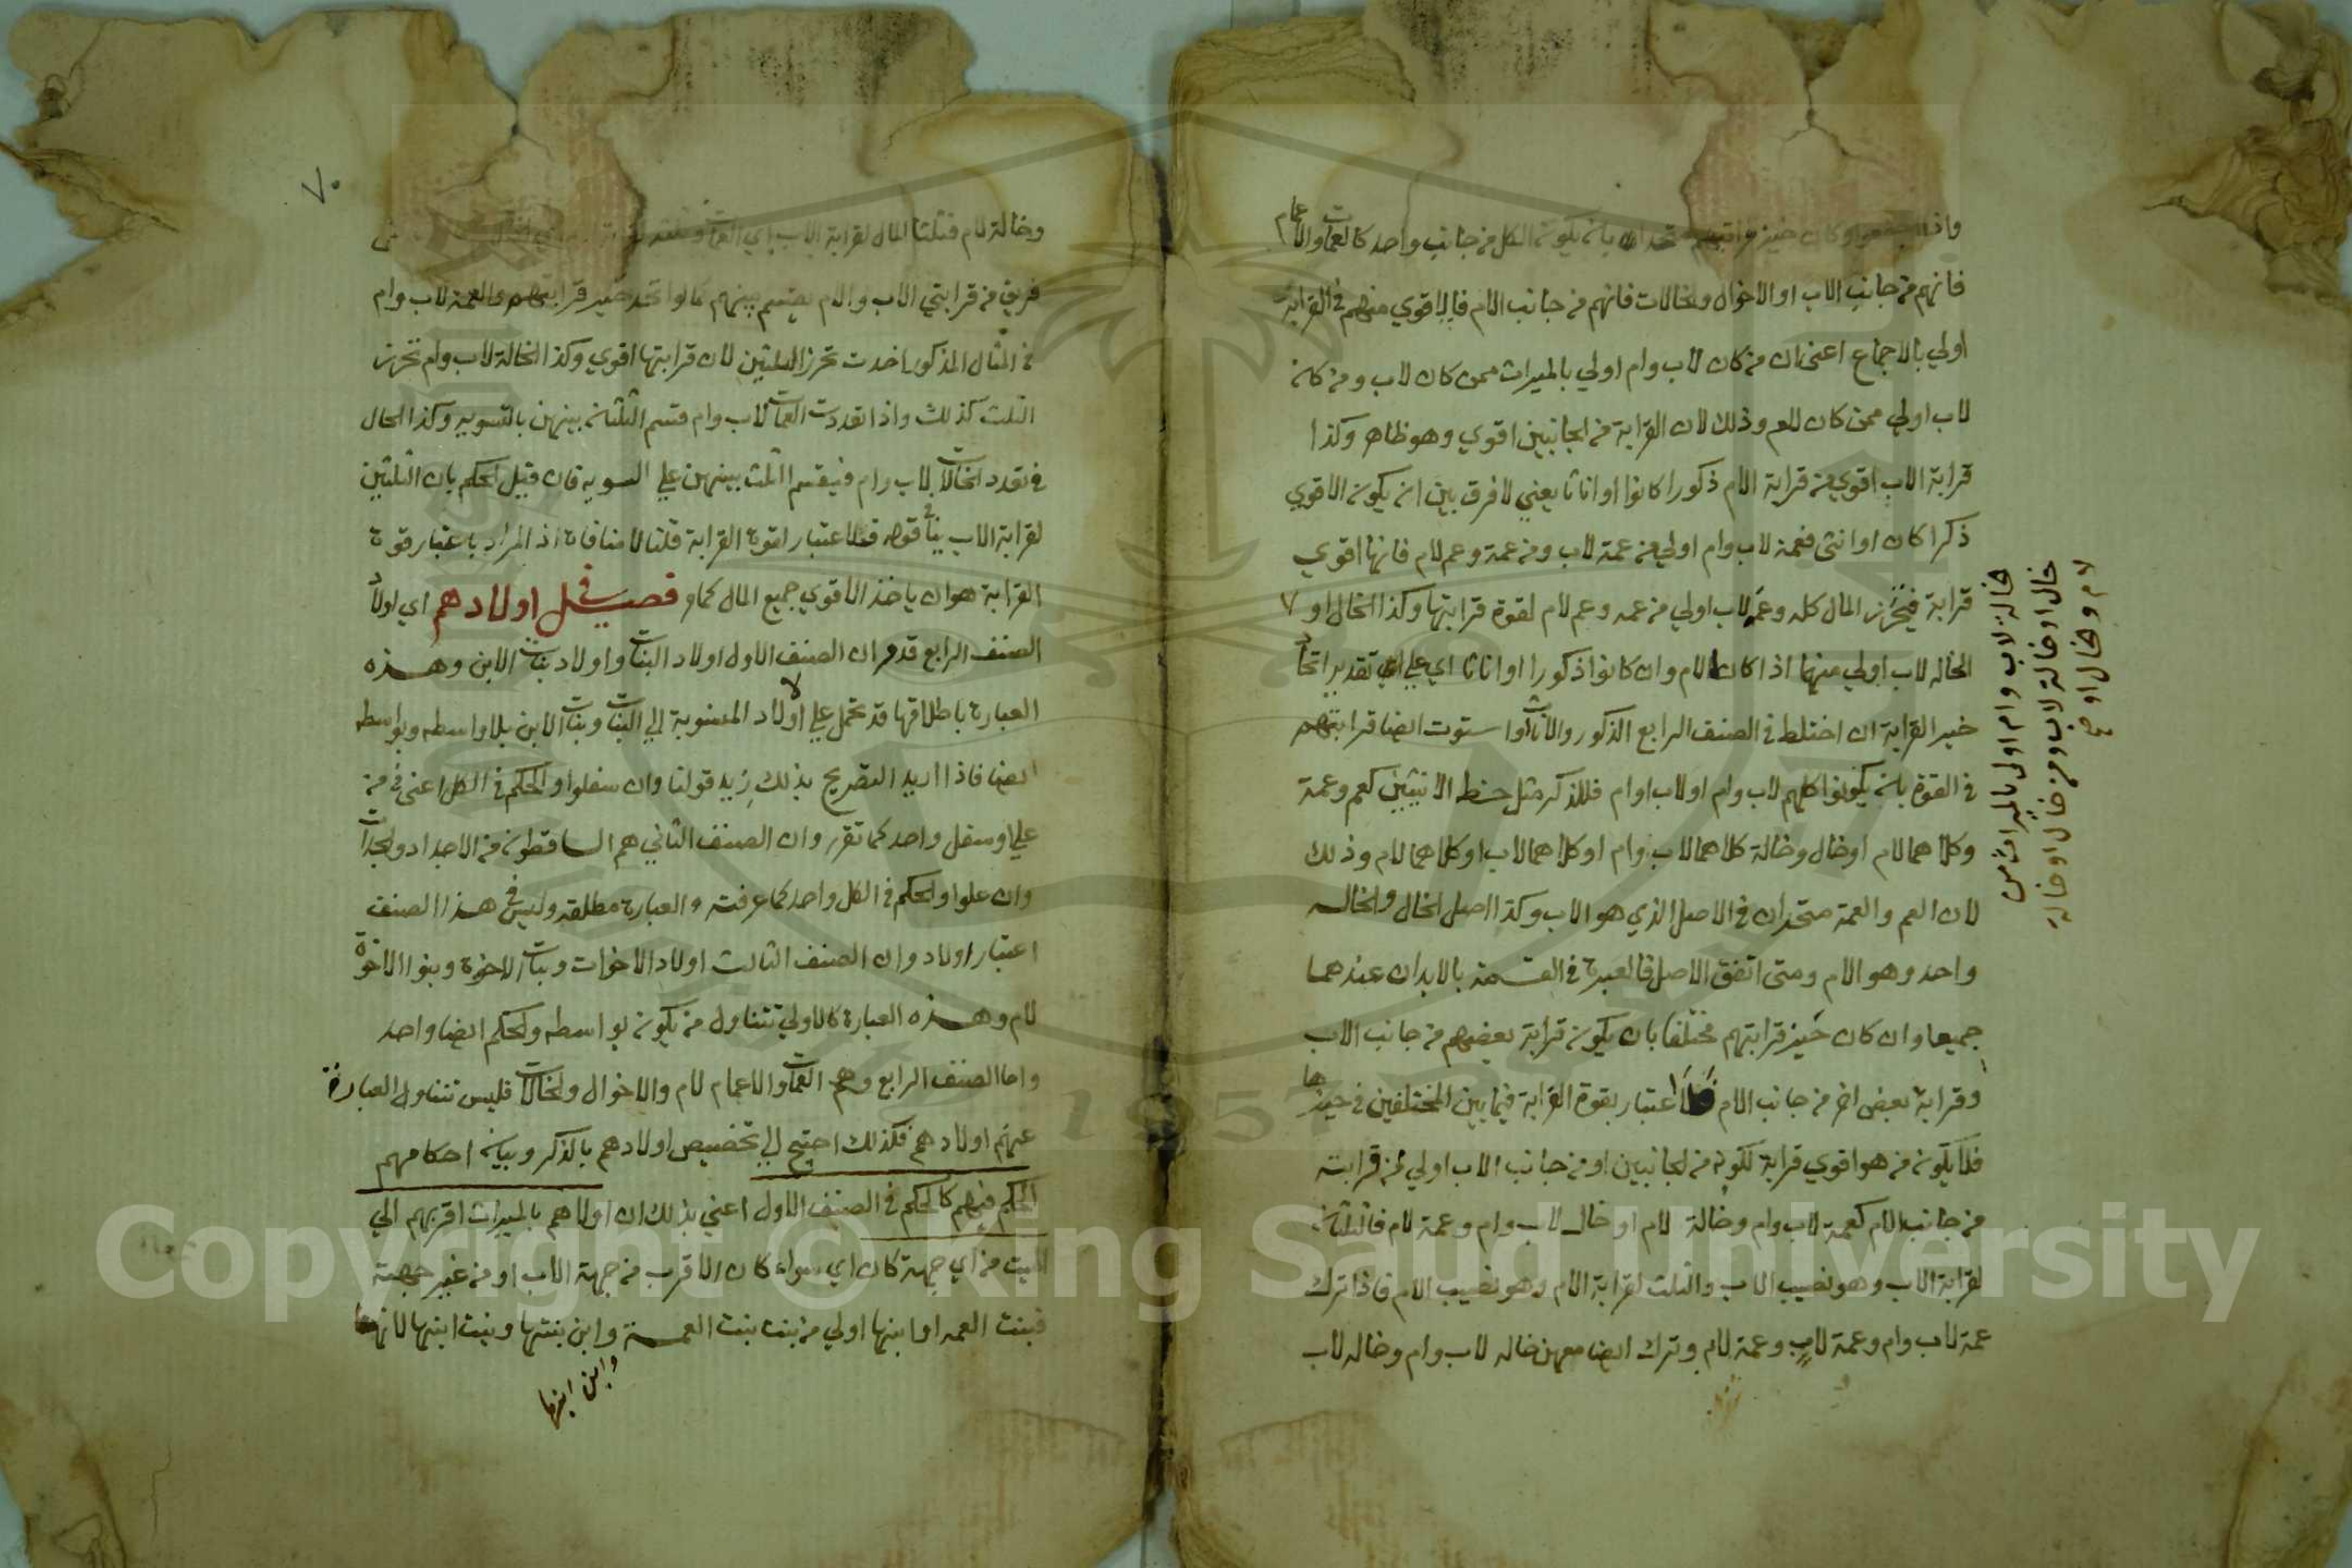 واذا اجتمعوا وكان حيز قرابتهم متحدا بان يكون الكل من جانب واحد كالعمات والاعمام
فانهم من جانب الاب او الاخوال والخالات فانهم من جانب الام فالاقوي منهم في القرابة
اولي بالاجماع اعنى ان من كان لاب وام اولي بالميراث ممن كان لاب ومن كان
لاب اولي ممن كان لام وذلك لان القرابة من الجانبين اقوي وهو ظاهر وكذا
قرابة الاب اقوي من قرابة الام ذكورا كانوا او اناثا يعني لا فرق بين ان يكون الاقوي
ذكرا كان او انثى فعمة لاب وام اولي من عمة لاب ومن عمة وعم لام فانها اقوي
قرابة فيحرز المال كله وعم لاب اولي من عمه وعم لام لقوة قرابتها وكذا الخال او
الخاله لاب اولي منهما اذا كان لام وان كانوا ذكورا او اناثا اي علي اي تقدير اتحاد
خير القرابة ان اختلط في الصنف الرابع الذكور والاناث واستوت ايضا قرابتهم
في القوة بان يكونوا كلهم لاب وام او لاب او لام فللذكر مثل حظ الانثيين كعم وعمة
وكلاهما لام او خال وخالة كلاهما لاب وام او كلاهما لاب او كلاهما لام وذلك
لان العم والعمة متحدان في الاصل الذي هو الاب وكذا اصل الخال والخاله
واحد وهو الام ومتى اتفق الاصل فالعبرة في القسمة بالابدان عندهما
جميعا وان كان حيز قرابتهم مختلفا بان يكون قرابة بعضهم من جانب الاب
وقرابة بعض اخر من جانب الام فلا اعتبار بقوة القرابة فيما بين المختلفين في حيزها
فلا يكون من هو اقوي قرابة لكونه من الجانبين او من جانب الاب اولي من قرابته
من جانب الام كعمة لاب وام وخالة لام او خال لاب وام وعمة لام فالثلثان
لقرابة الاب وهو نصيب الاب والثلث لقرابة الام وهو نصيب الام فاذا ترك
عمة لاب وام وعمة لاب وعمة لام وترك ايضا معهن خاله لاب وام وخاله لاب
خالة لاب وام اولى بالميراث من
خال او خالة لاب ومن خال او خالة
لام وخال او
٧٠
وخالة لام فثلثا المال لقرابة الاب اي العمات
فريق من قرابتي الاب والام يقسم بينهم كما لو اتحد حيز قرابتهم والعمة لاب وام
في المثال المذكور اخدت تحرز الثلثين لان قرابتها اقوي وكذا الخالة لاب وام تحرز
الثلث كذلك واذا تعددت العمات لاب وام قسم الثلثان بينهن بالتسويه وكذا الحال
في تعدد الخالات لاب وام فيقسم الثلث بينهن علي السويه فان قيل الحكم بان الثلثين
لقرابة الاب ينافي قوله فلا اعتبار لقوة القرابة قلنا لا منافاة اذ المراد باعتبار قوة
القرابة هو ان ياخذ الاقوي جميع المال كما مر فصل في اولادهم اي اولاد
الصنف الرابع قد مر ان الصنف الاول اولاد البنات واولاد بنات الابن وهذه
العبارة باطلاقها قد تحمل علي الاولاد المنسوبة الي البنات وبنات الابن بلا واسطه وبواسطه
ايضا فاذا اريد التصريح بذلك زيد قولنا وان سفلوا والحكم في الكل اعنى في من
علي وسفل واحد كما تقرر وان الصنف الثاني هم الساقطون من الاجداد والجدات
وان علوا والحكم في الكل واحد كما عرفت والعبارة مطلقه وليس في هذا الصنف
اعتبار اولاد وان الصنف الثالث اولاد الاخوات وبنات الاخوة وبنوا الاخوة
لام وهذه العبارة كالاولي تتناول من يكون بواسطه والحكم ايضا واحد
واما الصنف الرابع وهم العمات والاعمام لام والاخوال والخالات فليس تتناول العبارة
عنهم اولادهم فلذلك احتيج الي تخصيص اولادهم بالذكر وبيان احكامهم
الحكم فيهم كالحكم في الصنف الاول اعني بذلك ان اولاهم بالميراث اقربهم الي
الميت من اي جهة كان اي سواء كان الاقرب من جهة الاب او من غير جهته
فبنت العمه او ابنها اولي من بنت بنت العمة وابن بنتها وبنت ابنها لانهما
وابن ابنها